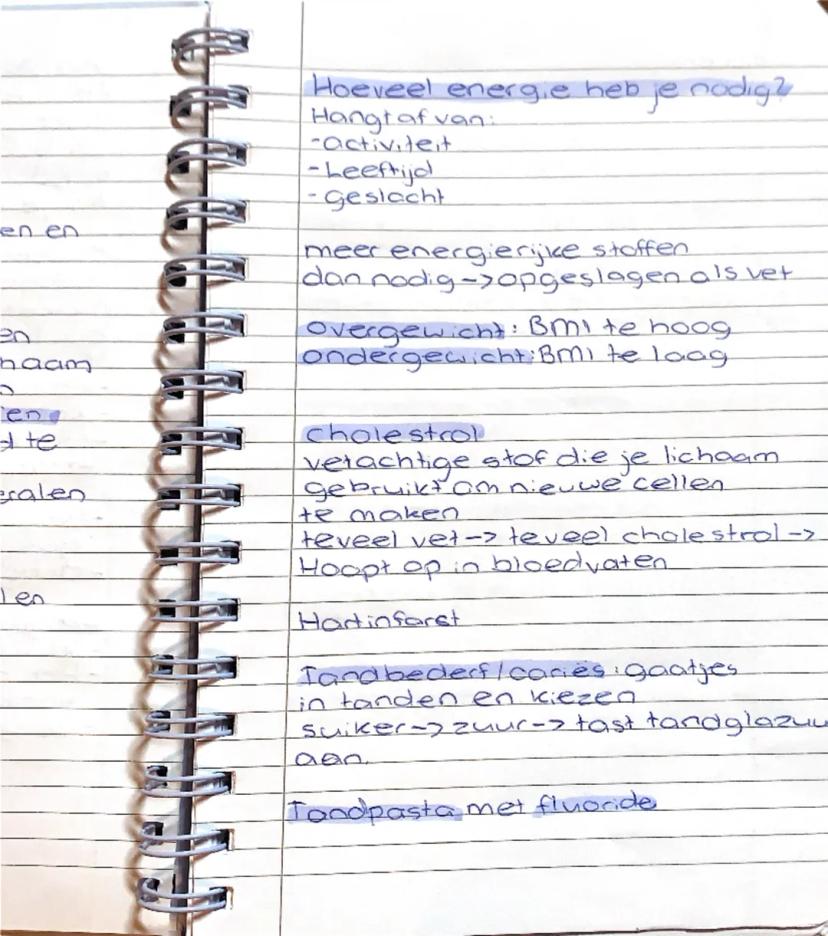 en en
en
haam
en
d te
len
Hoeveel energie heb je nodig?
Hangt af van:
-activiteit
-Leeftijd
-geslacht
meer energierijke stoffen
dan nodig->opgeslagen als vet
overgewicht: BMI te hoog
ondergewicht:BMI te laag
cholestrol
vetachtige stof die je lichaam
gebruikt om nieuwe cellen
te maken
teveel vet-> teveel cholestrol->
Hoopt op in bloedvaten
Hartinfarst
Tandbederf/cariës: gaatjes
in tanden en kiezen
suiker->zuur->tast tandglazuu
aan.
Tandpasta met fluoride